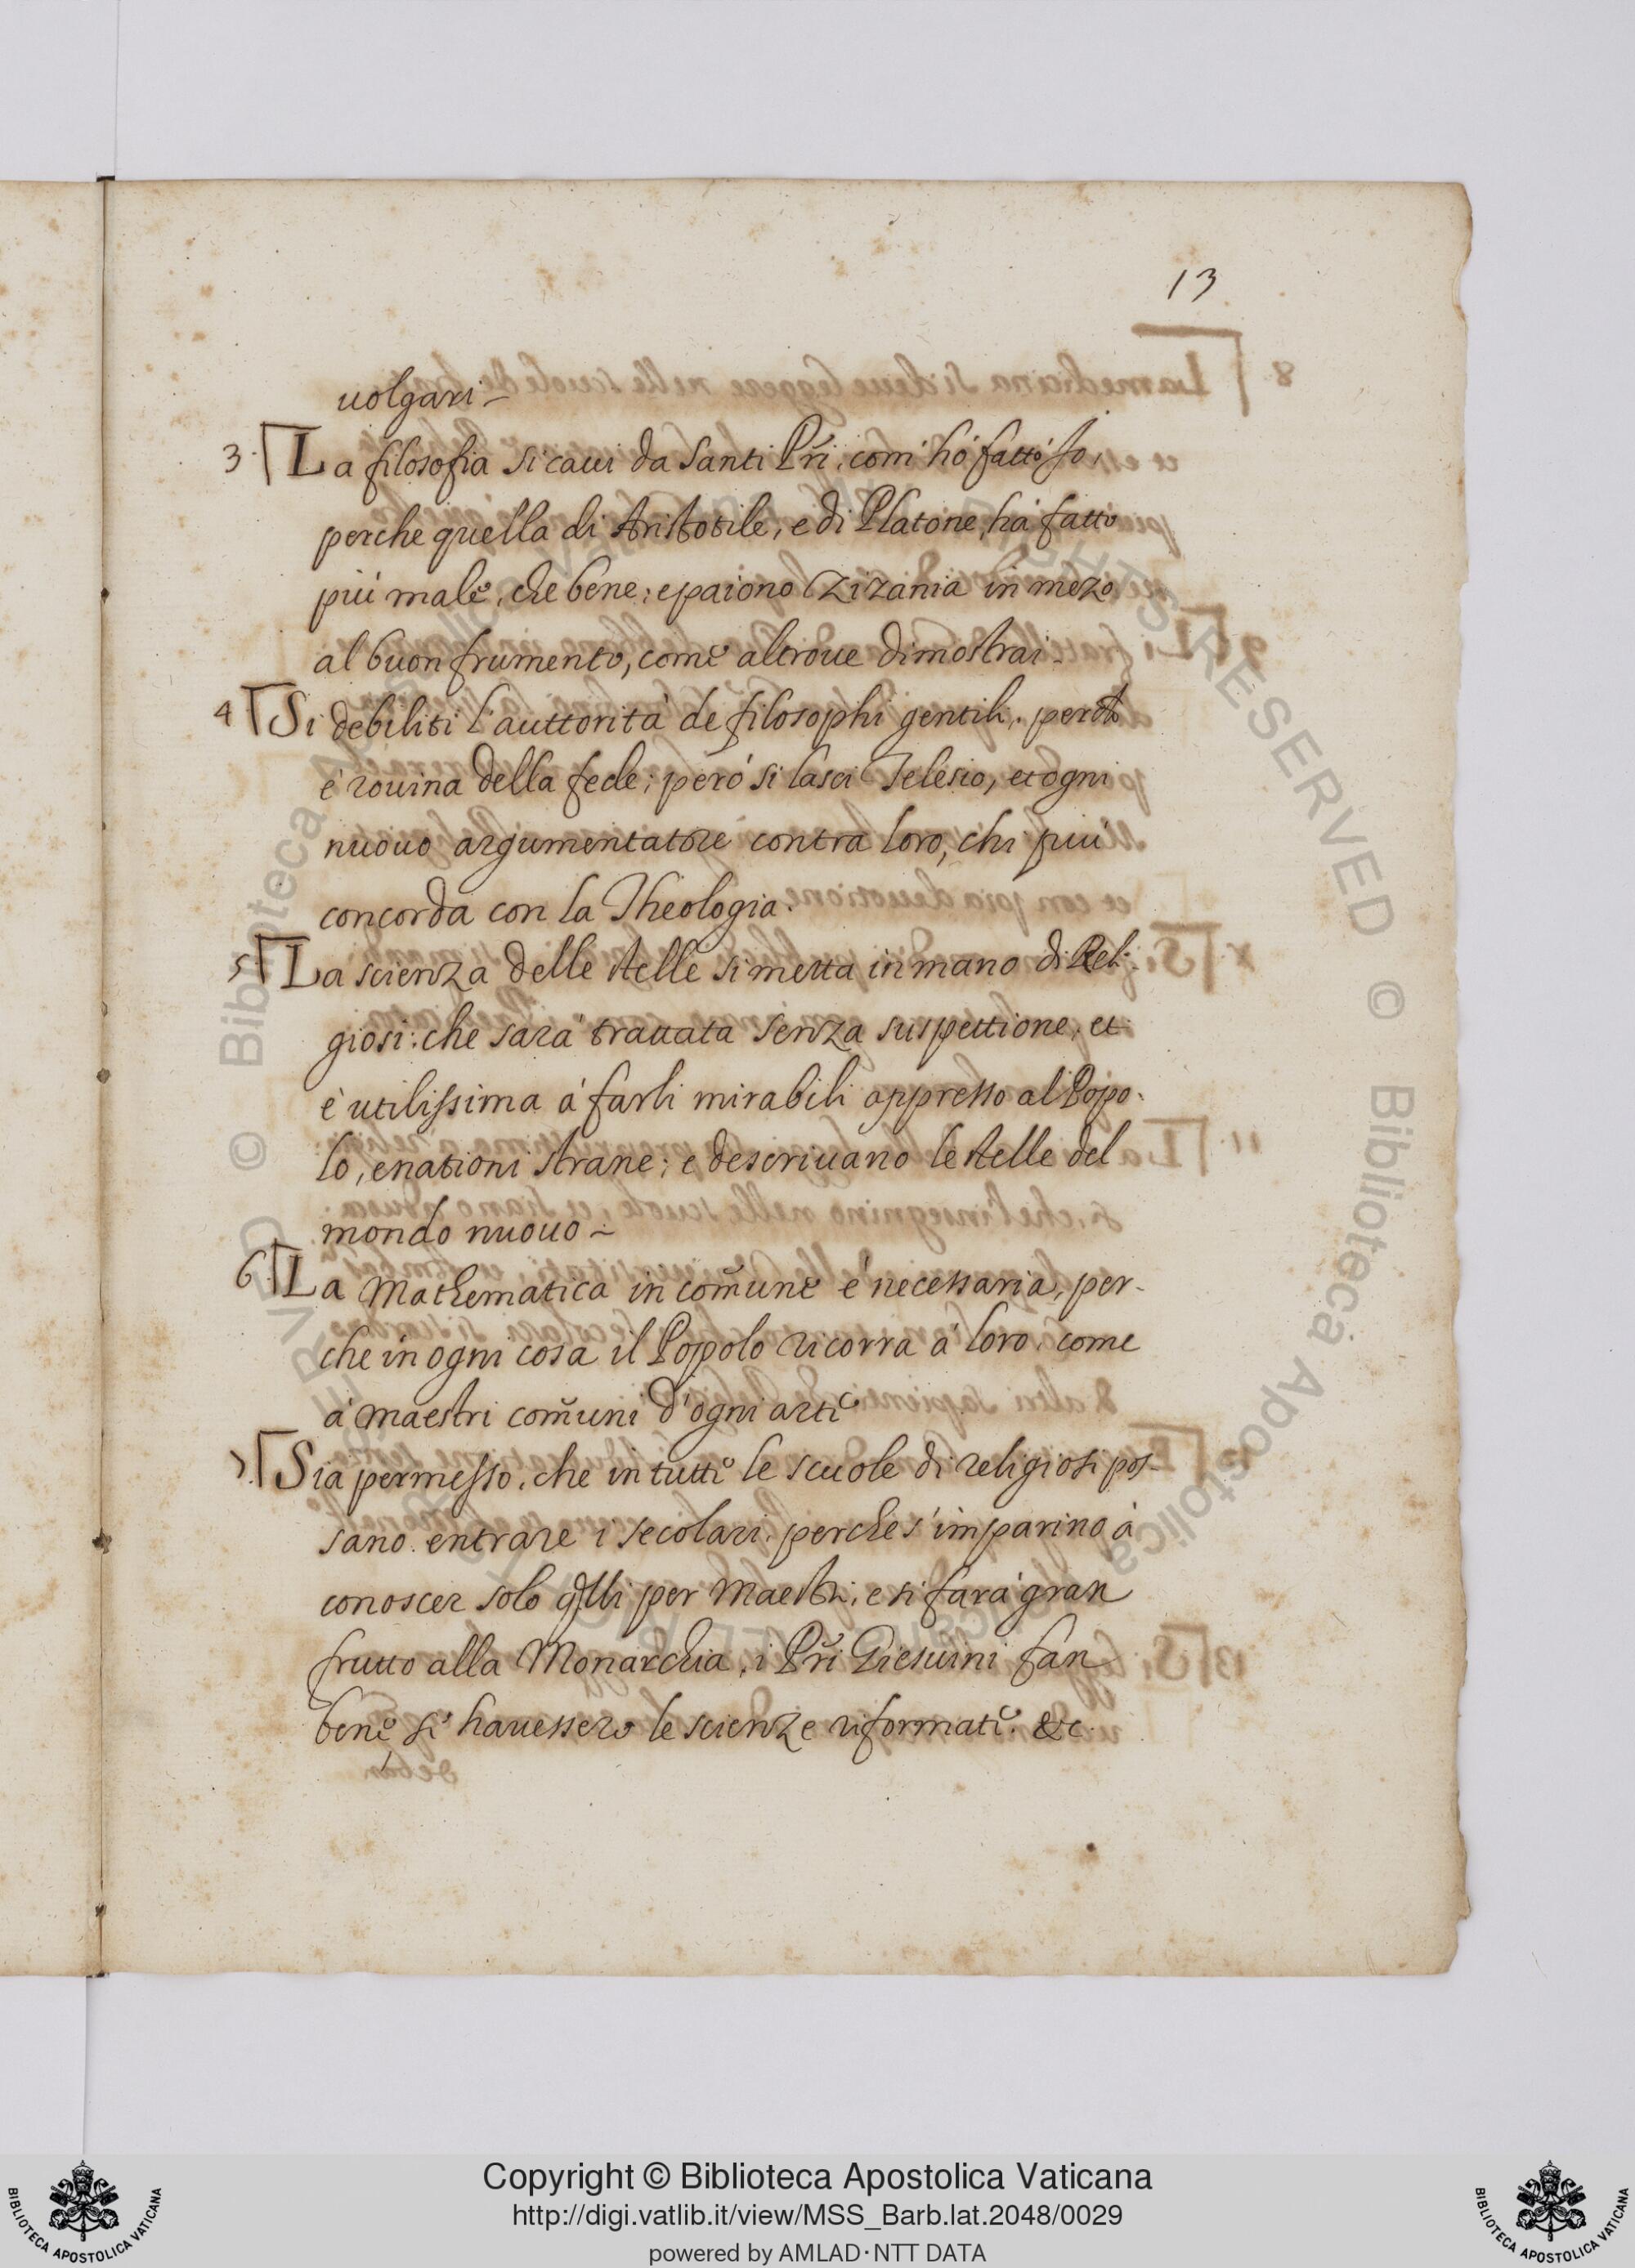 13
uolgari
3. La filosofia si caui da Santi Pr̃i, com' hò fatto Io,
perche quella di Aristotile, e di Platone, hà fatto
più male, che bene; e paiono Zizania in mezo
al buon frumento, come altroue dimostrai.
4 Si debiliti l'auttorità de filosophi gentili,
è rouina della fede; però si lasci Telesio, et ogni
nuouo argumentatore contra loro, chi più
concorda con la Theologia.
5. La scienza delle stelle si metta in mano di Reli-
giosi: che sarà trattata senza suspettione, et
è utilissima à farli mirabili appresso al Popo-
lo, e nationi strane; e descriuano le stelle del
mondo nuouo
6. La Mathematica in com̃une è necessaria, per-
che in ogni cosa il Popolo ricorra à loro, come
à maestri com̃uni d'ogni arte
7. Sia permesso, che in tutte le scuole di religiosi pos-
sano entrare i secolari, perche s'imparino à
conoscer solo q̃lli per Maestri, e si farà gran
frutto alla Monarchia, i Pr̃i Giesuini fan
bene, se hauessero le scienze riformate. &c.
Copyright © Biblioteca Apostolica Vaticana
http://digi.vatlib.it/view/MSS_Barb.lat.2048/0029
powered by AMLAD·NTT DATA
BIBLIOTECA APOSTOLICA VATICANA
BIBLIOTECA APOSTOLICA VATICANA